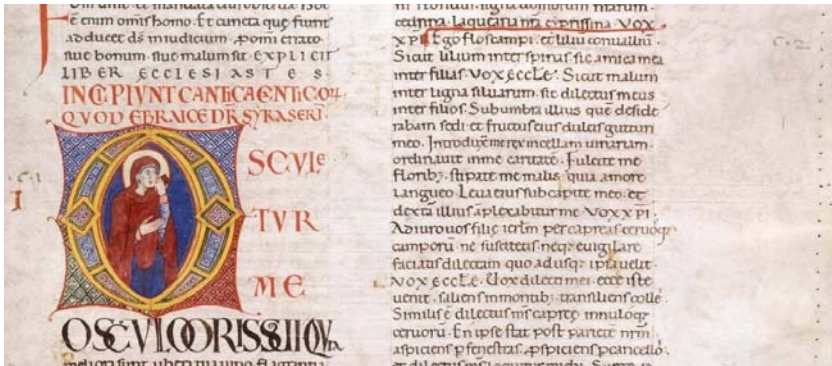 e enim omis homo. Et cuncta quę fiunt
adducet ds in iudicium. p omi errato.
siue bonum. siue malum sit. EXPLICIT
LIBER ECCLESIASTES.
QVOD EBRAICE DR SYRASERI.
SCVLE
TVR
ME
I
C. 1
C. 2
VOX
XPI. Ego flos campi. et liliu conualliu.
Sicut lilium inter spinas. sic amica mea
inter filias. VOX ECCLE. Sicut malum
inter ligna siluarum. sic dilectus meus
inter filios. Sub umbra illius quē deside
rabam sedi. et fructus eius dulcis gutturi
meo. Introduxit me rex in cellam uinariam.
ordinauit in me caritatē. Fulcite me
florib; stipate me malis. quia amore
langueo. Leua eius sub capite meo. et
dextra illius āplexabitur me. VOX XPI.
Adiuro uos filię ierlm per capreas ceruosq;
camporū. ne suscitetis. neq; euigilare
faciatis dilectam quo adusq; ipsa uelit.
VOX ECCLE. Uox dilecti mei. ecce iste
uenit. saliens in montib; transiliens colle
Similis ē dilectus ms capreę. innuloq;
ceruorū. En ipse stat post parietē nrm
aspiciens p fenestras. pspiciens p cancello